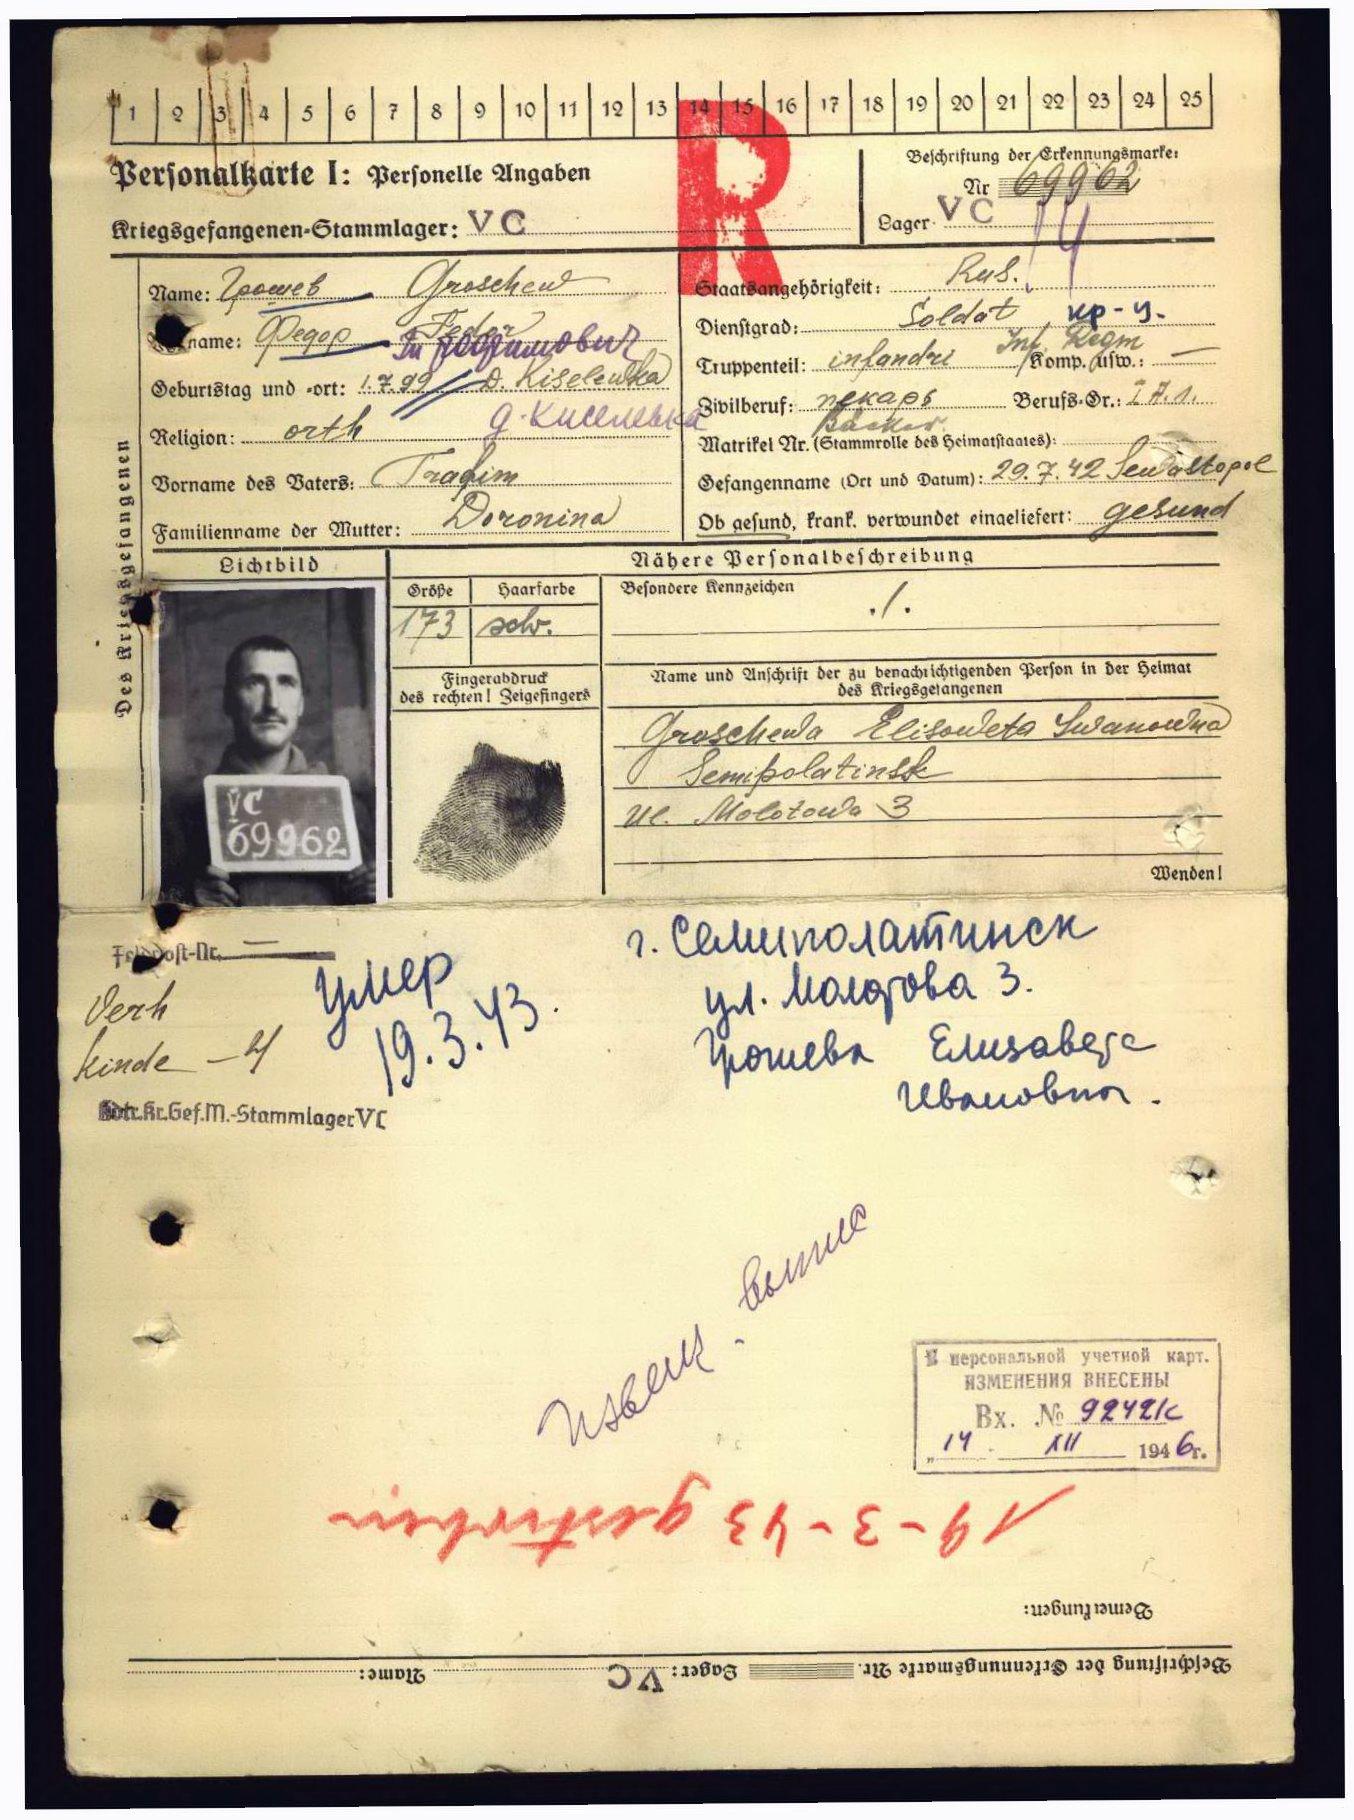 1 2 3 4 5 6 7 8 9 10 11 12 13 14 15 16 17 18 19 20 21 22 23 24 25
R
Personalkarte I: Personelle Angaben
Kriegsgefangenen-Stammlager: VC
Beschriftung der Erkennungsmarke:
Nr 69962
Lager VC
Des Kriegsgefangenen
Name: Грошев Groschew
name: Федор Fedor
Трофимович
Geburtstag und -ort: 1.7.99 D. Kiselewka
д. Киселевка
Religion: orth
Vorname des Vaters: Trafim
Familienname der Mutter: Doronina
Staatsangehörigkeit: Rus.
Dienstgrad: Soldat кр-ц.
Inf. Regm
Truppenteil: infandri Komp. usw.: —
Zivilberuf: пекарь Berufs-Gr.: I A.1.
Bäcker
Matrikel Nr. (Stammrolle des Heimatstaates):
Gefangenname (Ort und Datum): 29.7.42 Sewastopol
Ob gesund, krank, verwundet eingeliefert: gesund
Lichtbild
VC
69962
Nähere Personalbeschreibung
Größe Haarfarbe Besondere Kennzeichen
173 schw. ./.
Fingerabdruck
des rechten! Zeigefingers
Name und Anschrift der zu benachrichtigenden Person in der Heimat
des Kriegsgefangenen
Groschewa Elisoweta Iwanowna
Semipolatinsk
Ul. Molotowa 3
Wenden!
Feldpost-Nr. —
Verh
Kinde — 4
Kr.Gef.M.-Stammlager VC
умер
19.3.43.
г. Семиполатинск
ул. Молотова 3.
Грошева Елизавета
Ивановна.
Извещ. выписк
В персональной учетной карт.
ИЗМЕНЕНИЯ ВНЕСЕНЫ
Вх. № 9242к
„14" XII 1946г.
19-3-43 gestorben
Bemerkungen:
Beschriftung der Erkennungsmarke Nr. Lager: VC Name: